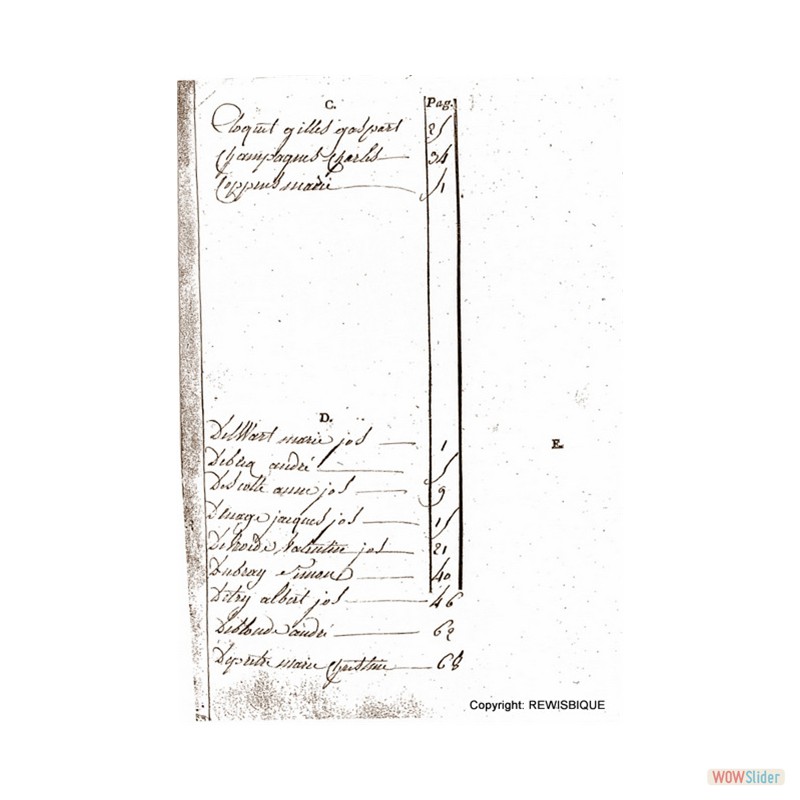 C. Pag.
Cloquet gilles gaspart 25
Champagnes Charles 34
Coppens marie 51
D.
Delwart marie jos 1
E.
Debecq andré 5
anne jos 9
jacques jos 15
Valentin jos 21
Dubray Simon 40
Detry albert jos 46
Deblonde andré 62
Depretre marie Christine 68
Copyright: REWISBIQUE
WOWSlider